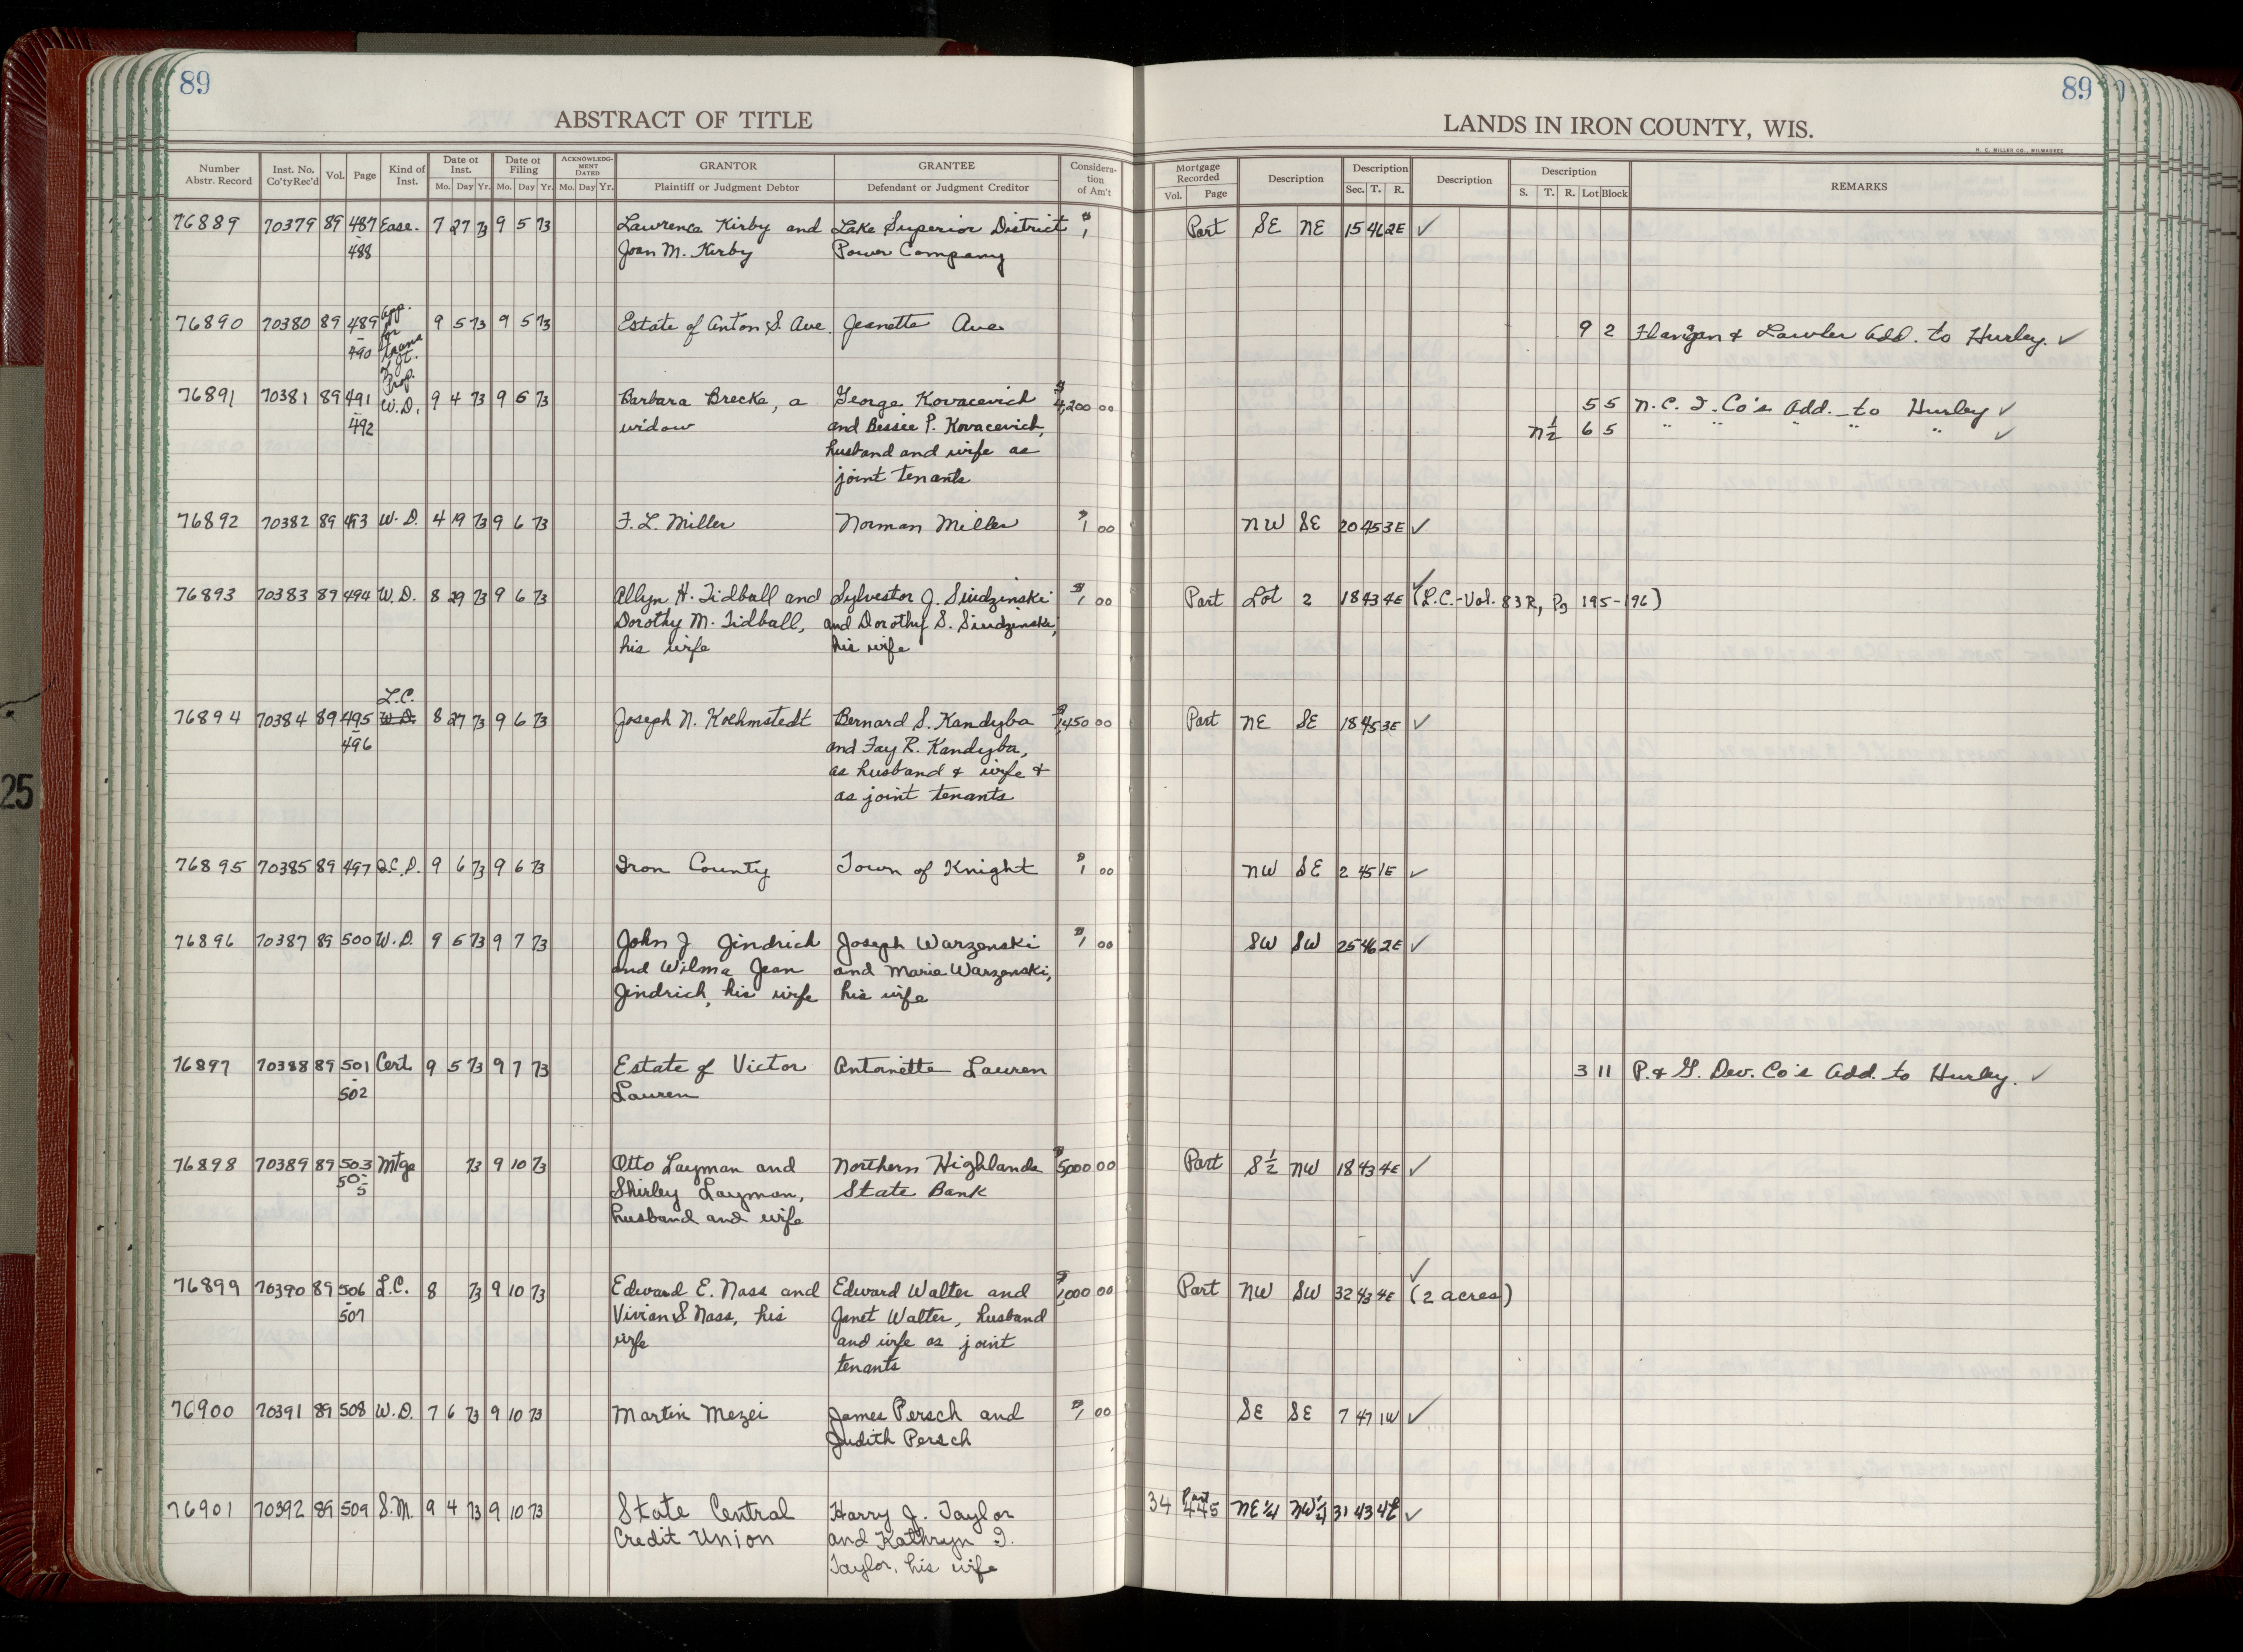 89
89
ABSTRACT OF TITLE
LANDS IN IRON COUNTY, WIS.
H. C. MILLER CO., MILWAUKEE
Number Abstr. Record Inst. No. Co'ty Rec'd Vol. Page Kind of Inst. Date of Inst. Mo. Day Yr. Date of Filing Mo. Day Yr. ACKNOWLEDGMENT DATED Mo. Day Yr. GRANTOR Plaintiff or Judgment Debtor GRANTEE Defendant or Judgment Creditor Consideration of Am't Mortgage Recorded Vol. Page Description Description Sec. T. R. Description Description S. T. R. Lot Block REMARKS
76889 70379 89 487 Ease. 7 27 73 9 5 73 Lawrence Kirby and Lake Superior District $1 Part SE NE 15 46 2E ✓
- 488 Joan M. Kirby Power Company
76890 70380 89 489 App. for trans of Jt. Prop. 9 5 73 9 5 73 Estate of Anton S. Ave. Jeanette Ave 9 2 Flanigan & Lawler Add. to Hurley. ✓
- 490
76891 70381 89 491 W.D. 9 4 73 9 5 73 Barbara Brecke, a George Kovacevich $4,200 00 5 5 N.C.I. Co's Add. to Hurley ✓
- 492 widow and Bessie P. Kovacevich, N½ 6 5 " " " " " ✓
husband and wife as
joint tenants
76892 70382 89 493 W.D. 4 19 73 9 6 73 F. L. Miller Norman Miller $1 00 NW SE 20 45 3E ✓
76893 70383 89 494 W.D. 8 29 73 9 6 73 Allyn H. Tidball and Sylvestor J. Siudzinski $1 00 Part Lot 2 18 43 4E ✓ (L.C.-Vol. 83R, Pg 195-196)
Dorothy M. Tidball, and Dorothy S. Siudzinski,
his wife his wife
76894 70384 89 495 L.C. W.D. 8 27 73 9 6 73 Joseph N. Koehmstedt Bernard S. Kandyba $1,450 00 Part NE SE 18 45 3E ✓
- 496 and Fay R. Kandyba,
as husband & wife &
as joint tenants
76895 70385 89 497 Q.C.D. 9 6 73 9 6 73 Iron County Town of Knight $1 00 NW SE 2 45 1E ✓
76896 70387 89 500 W.D. 9 5 73 9 7 73 John J Jindrich Joseph Warzenski $1 00 SW SW 25 46 2E ✓
and Wilma Jean and Marie Warzenski,
Jindrich, his wife his wife
76897 70388 89 501 Cert 9 5 73 9 7 73 Estate of Victor Antoinette Lauren 3 11 P. & G. Dev. Co's Add. to Hurley. ✓
- 502 Lauren
76898 70389 89 503 Mtge 73 9 10 73 Otto Layman and Northern Highlands $5000 00 Part S½ NW 18 43 4E ✓
- 505 Shirley Layman, State Bank
husband and wife
76899 70390 89 506 L.C. 8 73 9 10 73 Edward E. Nass and Edward Walter and $1,000 00 Part NW SW 32 43 4E ✓ (2 acres)
- 507 Vivian S Nass, his Janet Walter, husband
wife and wife as joint
tenants
76900 70391 89 508 W.D. 7 6 73 9 10 73 Martin Mezei James Persch and $1 00 SE SE 7 47 1W ✓
Judith Persch
76901 70392 89 509 S.M. 9 4 73 9 10 73 State Central Harry J. Taylor 34 445 Part NE¼ NW¼ 31 43 4E ✓
Credit Union and Kathryn I.
Taylor, his wife
25